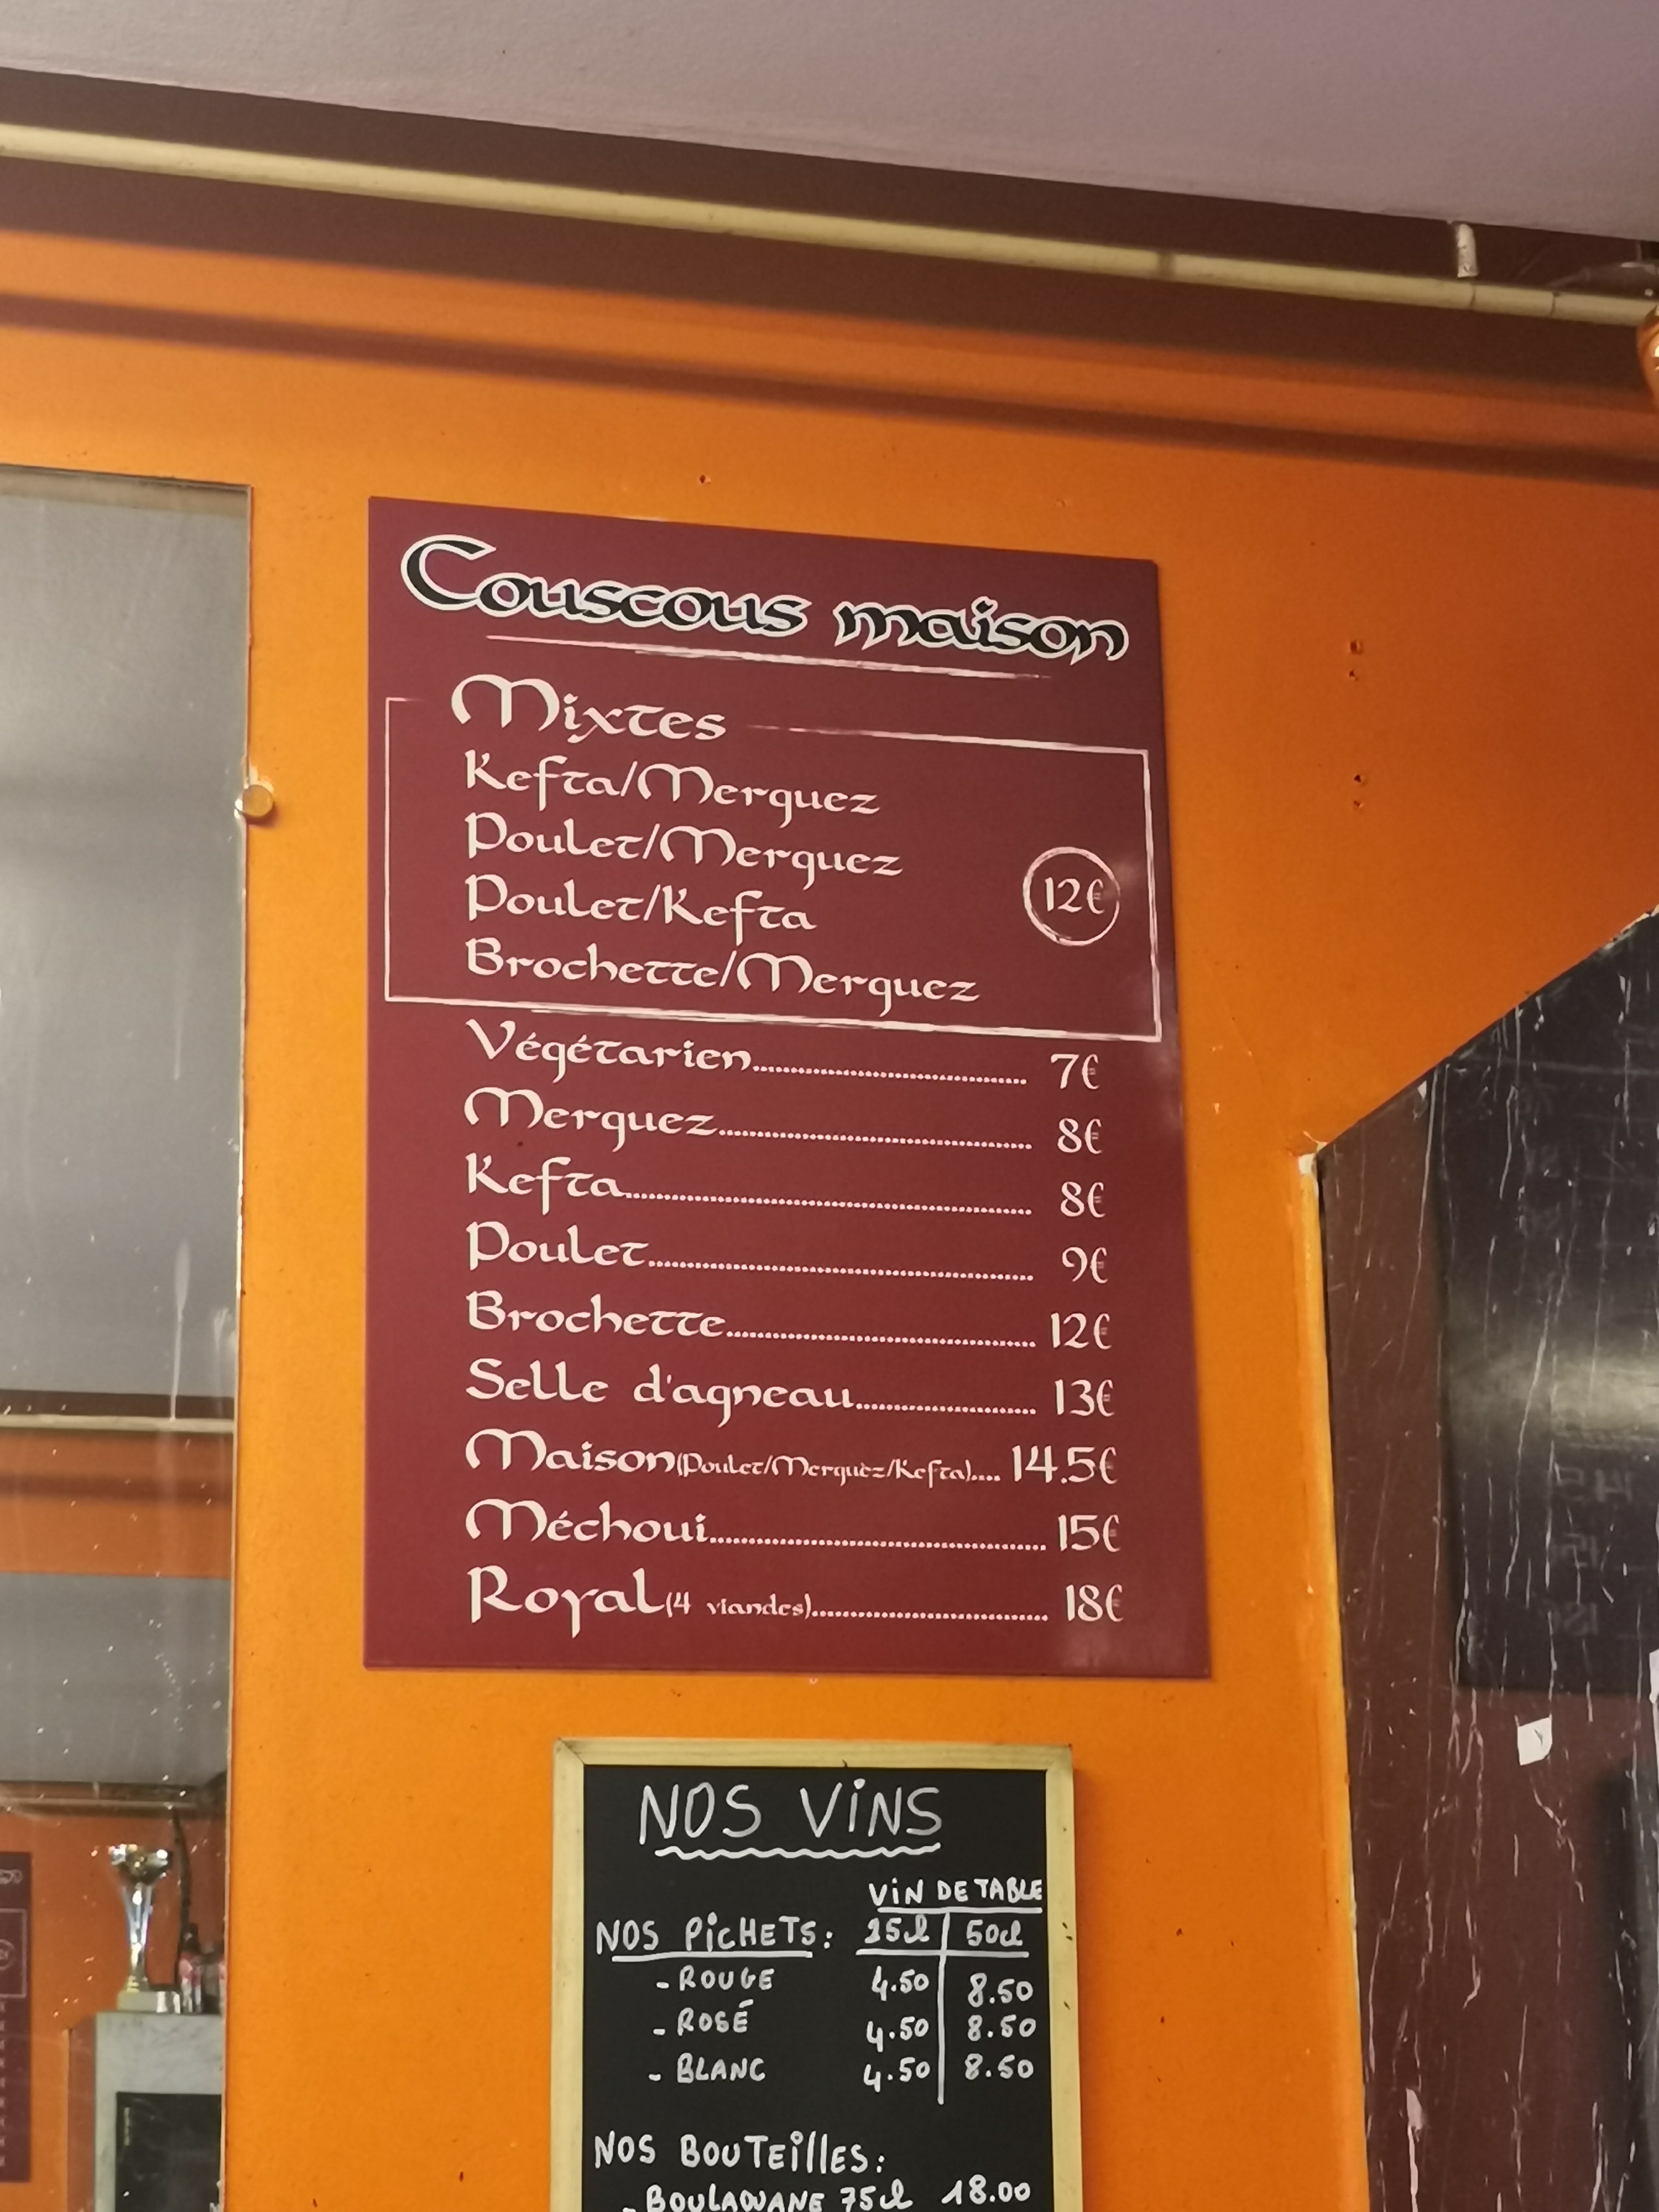 Couscous maison
Mixtes
Kefta/Merguez
Poulet/Merguez
Poulet/Kefta
12€
Brochette/Merguez
Végétarien 7€
Merguez 8€
Kefta 8€
Poulet 9€
Brochette 12€
Selle d'agneau 13€
Maison (Poulet/Merguèz/Kefta) 14.5€
Méchoui 15€
Royal (4 viandes) 18€
NOS VINS
VIN DE TABLE
NOS PICHETS: 25cl 50cl
- ROUGE 4.50 8.50
- ROSÉ 4.50 8.50
- BLANC 4.50 8.50
NOS BOUTEILLES:
- BOULAOUANE 75cl 18.00